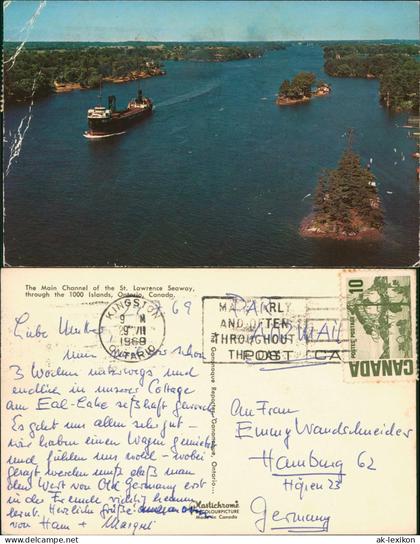 The Main Channel of the St. Lawrence Seaway,
through the 1000 Islands, Ontario, Canada.
69
KINGSTON
9 M
29 VII
1969
ONTARIO
MAIL EARLY
AND OFTEN
THROUGHOUT
THE DAY
PAR
AIR MAIL
POST CA
10
CANADA
Liebe
nun schon
3 Wochen unterwegs und
endlich in unserer Cottage
am Eal-Lake seßhaft geworden
Es geht uns allen sehr gut -
wir haben einen Wagen gemietet
und fühlen uns wohl - wobei
gesagt werden muß daß man
den Wert von Old Germany erst
in der Fremde richtig kennen
lernt. Herzliche Grüße
von Hans + Margret
Gananoque Reporter, Gananoque, Ontario
Plastichrome
COLOURPICTURE
Made in Canada
An Frau
Emmy Wandschneider
Hamburg 62
Högen 23
Germany
ak-lexikon
© ak-lexikon.com